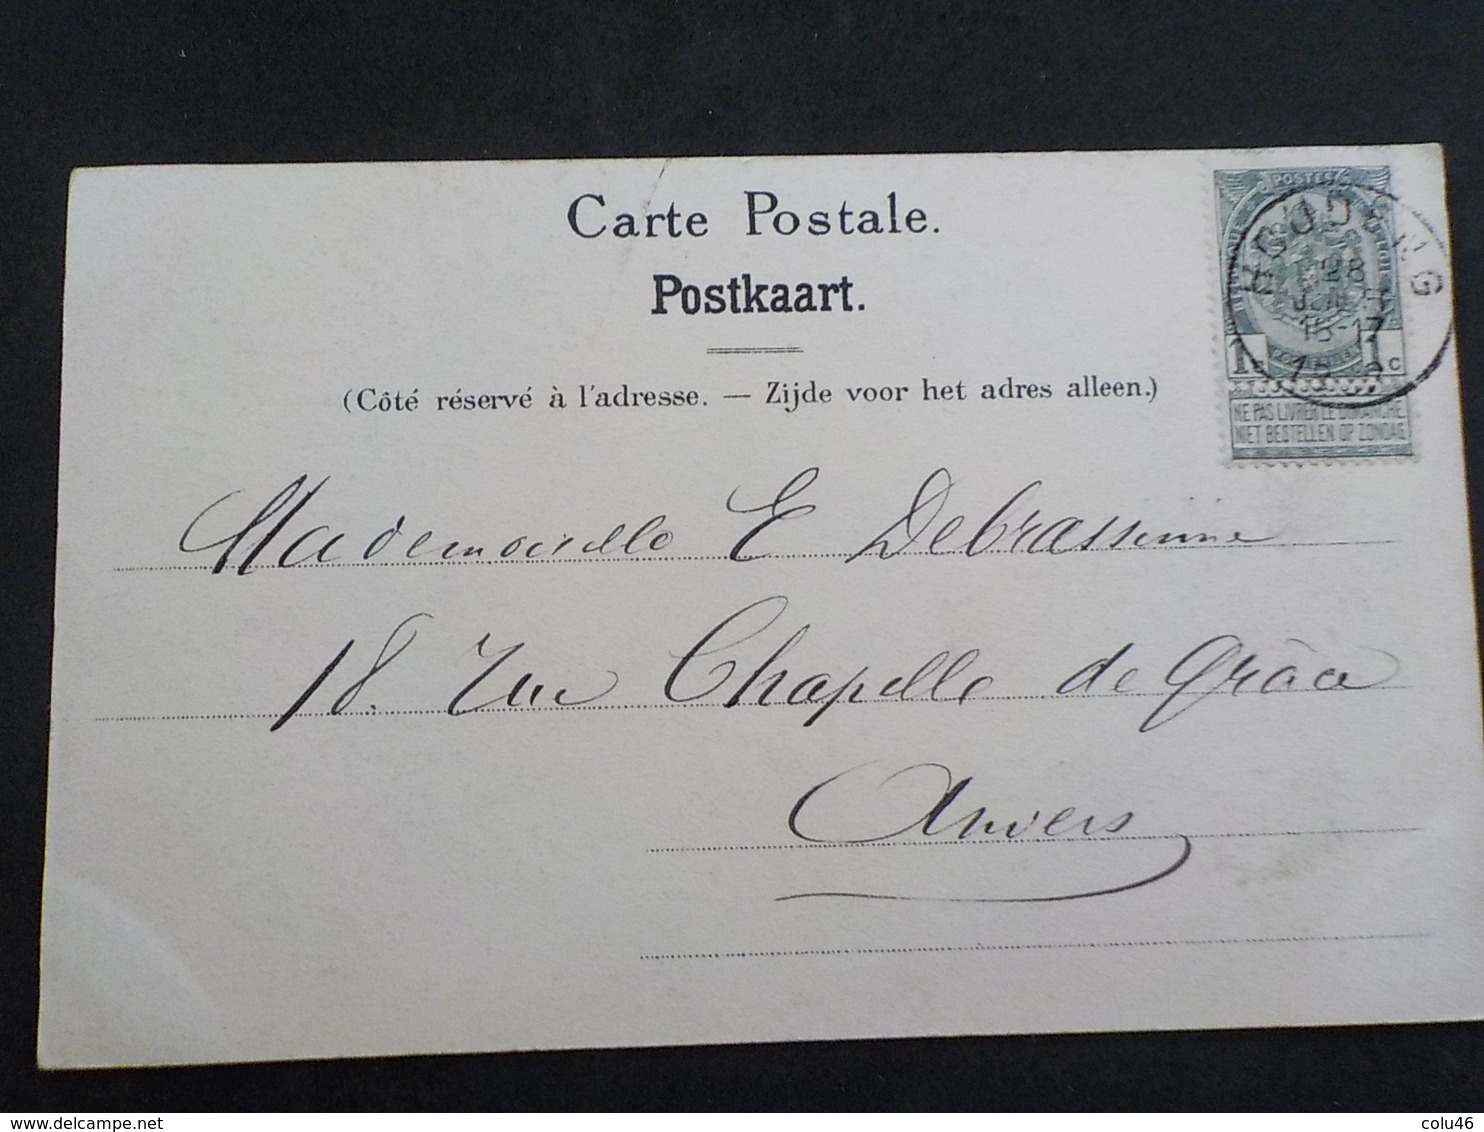 Carte Postale.
Postkaart.
(Côté réservé à l'adresse. — Zijde voor het adres alleen.)
POSTES
HOUDENG
28
15-17
1c 1c
NE PAS LIVRER LE DIMANCHE
NIET BESTELLEN OP ZONDAG
Mademoiselle E Debrassinne
18. Rue Chapelle de Grâce
Anvers
delcampe.net
colu46